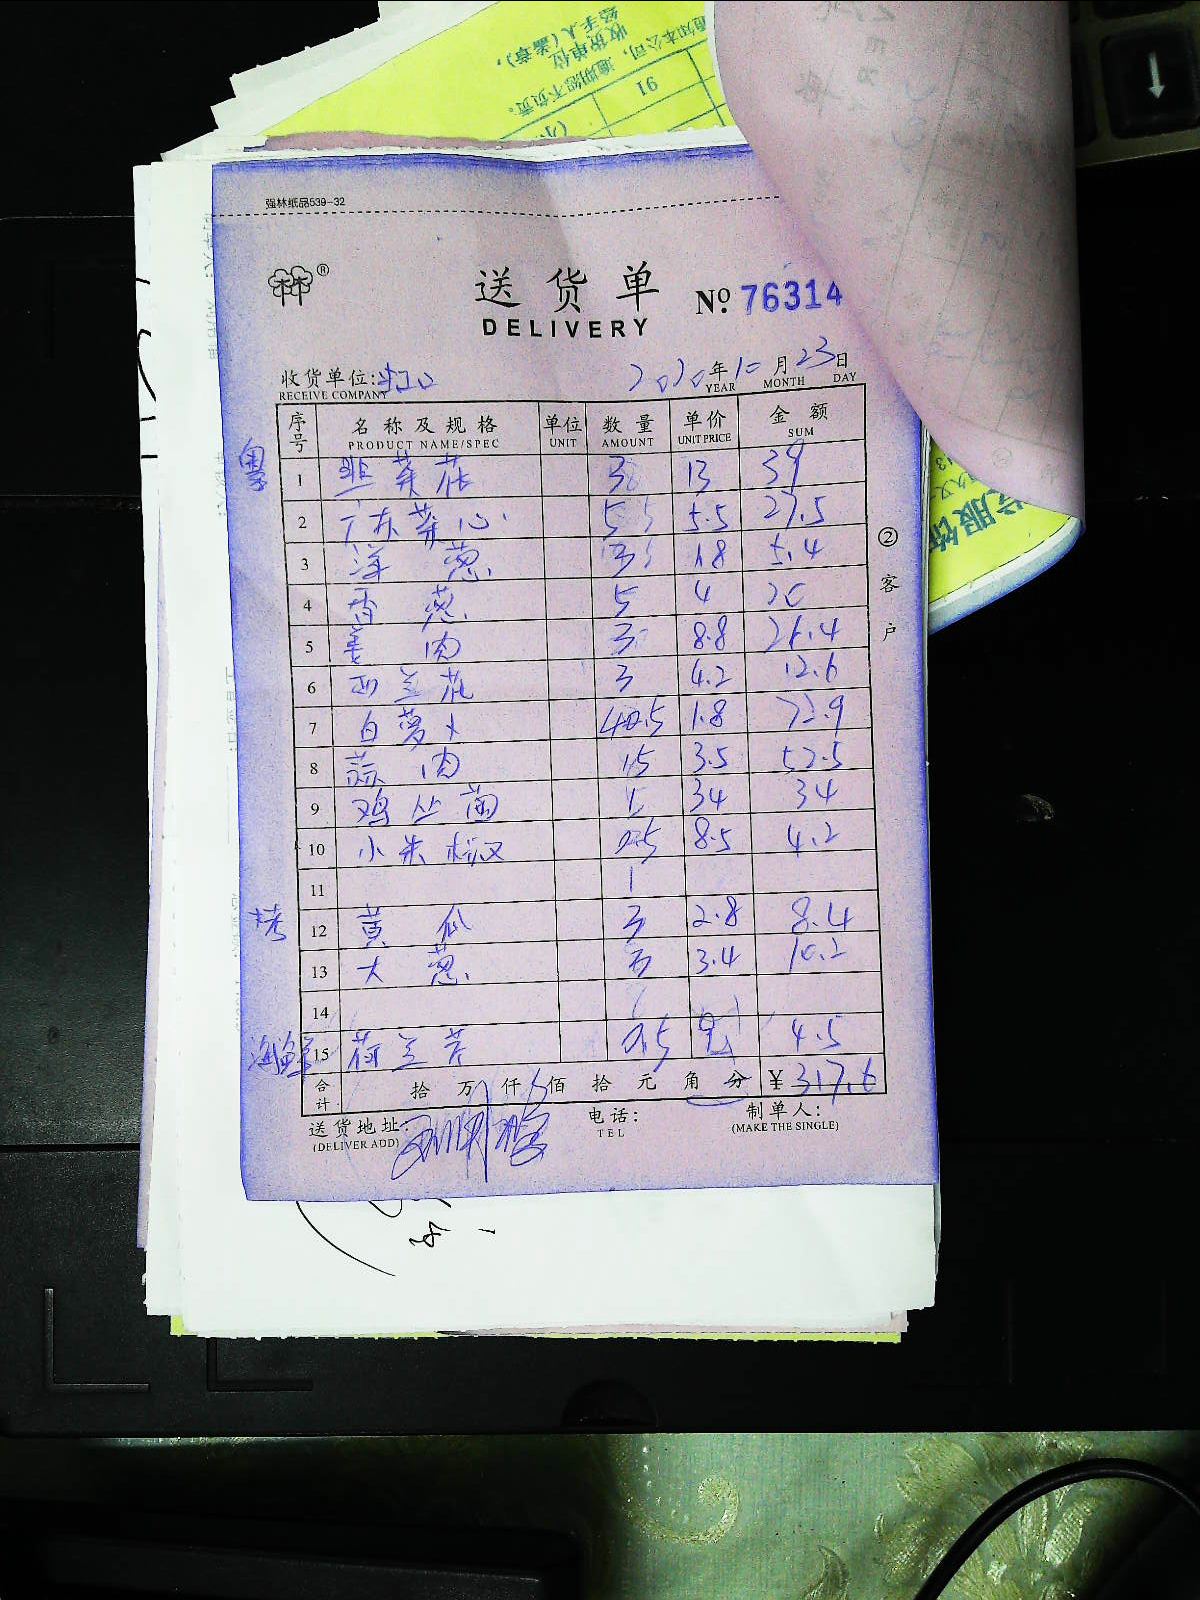 收货单位
经手人(盖章),
通知本公司, 逾期恕不负责。
16
强林纸品539-32
®
送货单
№ 76314
DELIVERY
收货单位: 虹口 2020年10月23日
RECEIVE COMPANY YEAR MONTH DAY
序号 名称及规格 单位 数量 单价 金额
PRODUCT NAME/SPEC UNIT AMOUNT UNIT PRICE SUM
粤
1 韭菜花 3 13 39
2 广东菜心 5 5.5 27.5
3 洋葱 3 1.8 5.4
4 香葱 5 4 20
5 姜肉 3 8.8 26.4
6 西兰花 3 4.2 12.6
7 白萝卜 40.5 1.8 72.9
8 蒜肉 15 3.5 52.5
9 鸡丛菌 1 34 34
10 小米椒 0.5 8.5 4.2
11
烤 12 黄瓜 3 2.8 8.4
13 大葱 3 3.4 10.2
14
海鲜 15 荷兰芹 0.5 9 4.5
合计 拾万仟佰拾元角分 ¥ 317.6
送货地址: 电话: 制单人:
(DELIVER ADD) TEL (MAKE THE SINGLE)
②客户